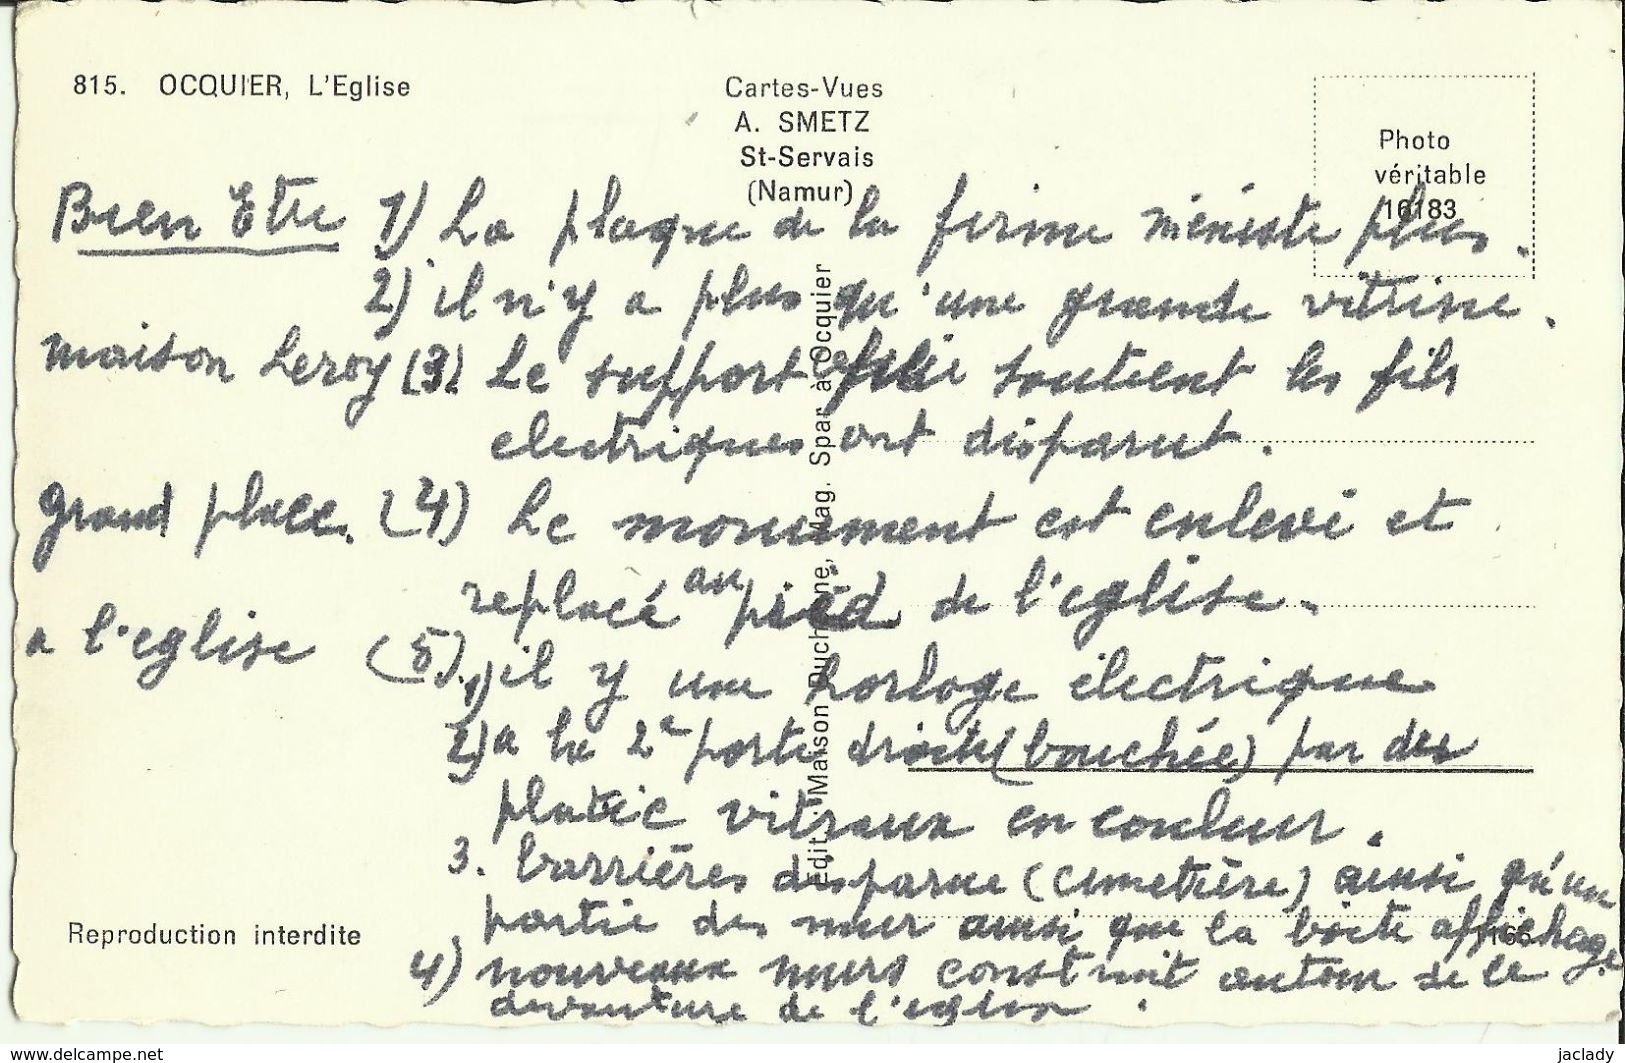 815. OCQUIER, L'Eglise
Cartes-Vues
A. SMETZ
St-Servais
(Namur)
Photo
véritable
16183
Bien Etre 1) La plaque de la firme n'éxiste plus.
2) il n'y a plus qu'une grande vitrine.
maison Leroy (3) Le support qui soutient les fils
electriques ont disparut.
Grand place. (4) Le monument est enlevé et
replacé au pied de l'eglise.
a l'eglise (5). 1) il y une horloge électrique
2) a la 2e porte droite (bouchée) par des
plastic vitraux en couleur.
3. barrières disparue (cimetière) ainsi qu'une
partie des mur ainsi que la boite affichage
4) nouveaux murs construit autour de la
devanture de l'eglise.
Edit.: Maison Duchesne, Mag. Spar à Ocquier
Reproduction interdite
https://www.delcampe.net
jaclady